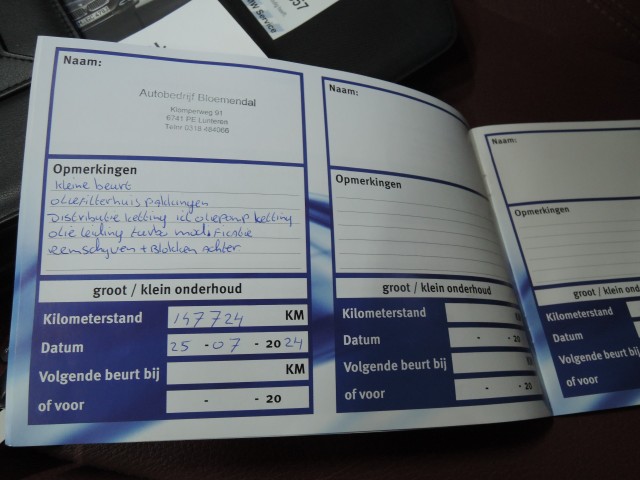 Naam:
Autobedrijf Bloemendal
Klomperweg 91
6741 PE Lunteren
Telnr 0318 484066
Opmerkingen
kleine beurt
oliefilterhuis pakkingen
Distributie ketting icl oliepomp ketting
olie leiding turbo modificatie
remschijven + Blokken achter
groot / klein onderhoud
Kilometerstand 147724 KM
Datum 25 - 07 - 2024
Volgende beurt bij KM
of voor - - 20
Naam:
Opmerkingen
groot / klein onderhoud
Kilometerstand
Datum - - 20
Volgende beurt bij KM
of voor - - 20
Naam:
Opmerkingen
groot / klein onderh
Kilometerstand
Datum
Volgende beurt bij
of voor
Service